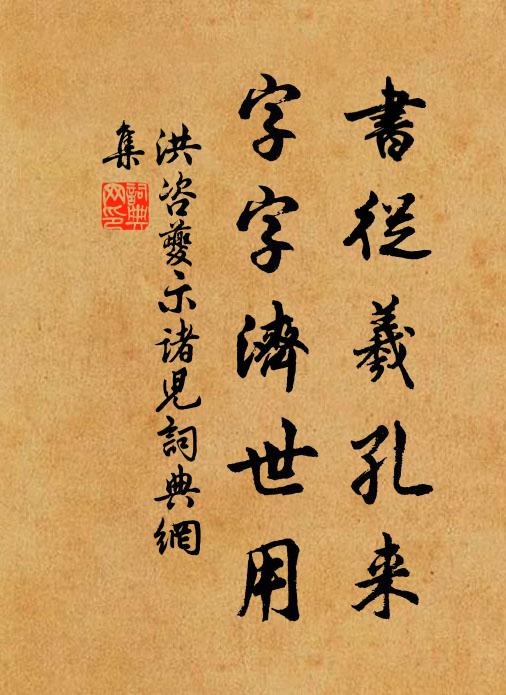 書從羲孔来
字字濟世用
洪咨夔示諸児詞典網
集
詞典
网印